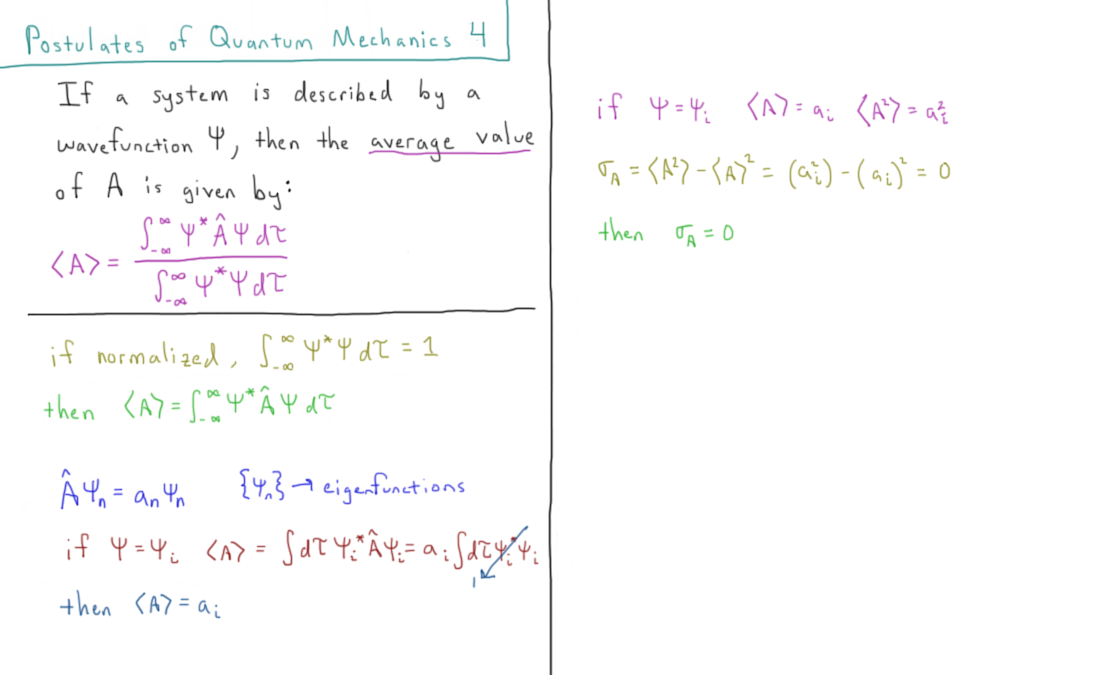 Postulates of Quantum Mechanics 4
If a system is described by a
wavefunction Ψ, then the average value
of A is given by:
⟨A⟩ = ∫_{-∞}^{∞} Ψ* Â Ψ dτ / ∫_{-∞}^{∞} Ψ* Ψ dτ
if normalized, ∫_{-∞}^{∞} Ψ* Ψ dτ = 1
then ⟨A⟩ = ∫_{-∞}^{∞} Ψ* Â Ψ dτ
Â Ψₙ = aₙ Ψₙ {Ψₙ} → eigenfunctions
if Ψ = Ψᵢ ⟨A⟩ = ∫dτ Ψᵢ* Â Ψᵢ = aᵢ ∫dτ Ψᵢ* Ψᵢ
1
then ⟨A⟩ = aᵢ
if Ψ = Ψᵢ ⟨A⟩ = aᵢ ⟨A²⟩ = aᵢ²
σ_A = ⟨A²⟩ - ⟨A⟩² = (aᵢ²) - (aᵢ)² = 0
then σ_A = 0